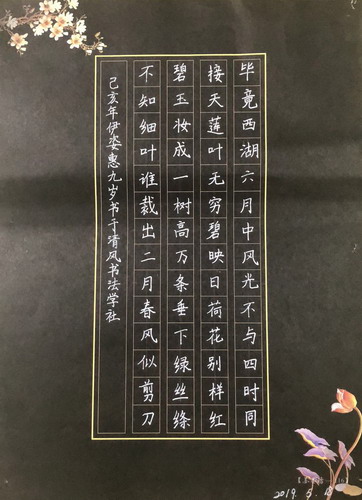 毕竟西湖六月中风光不与四时同
接天莲叶无穷碧映日荷花别样红
碧玉妆成一树高万条垂下绿丝绦
不知细叶谁裁出二月春风似剪刀
己亥年伊姿惠九岁书于清风书法学社
2019. 5.